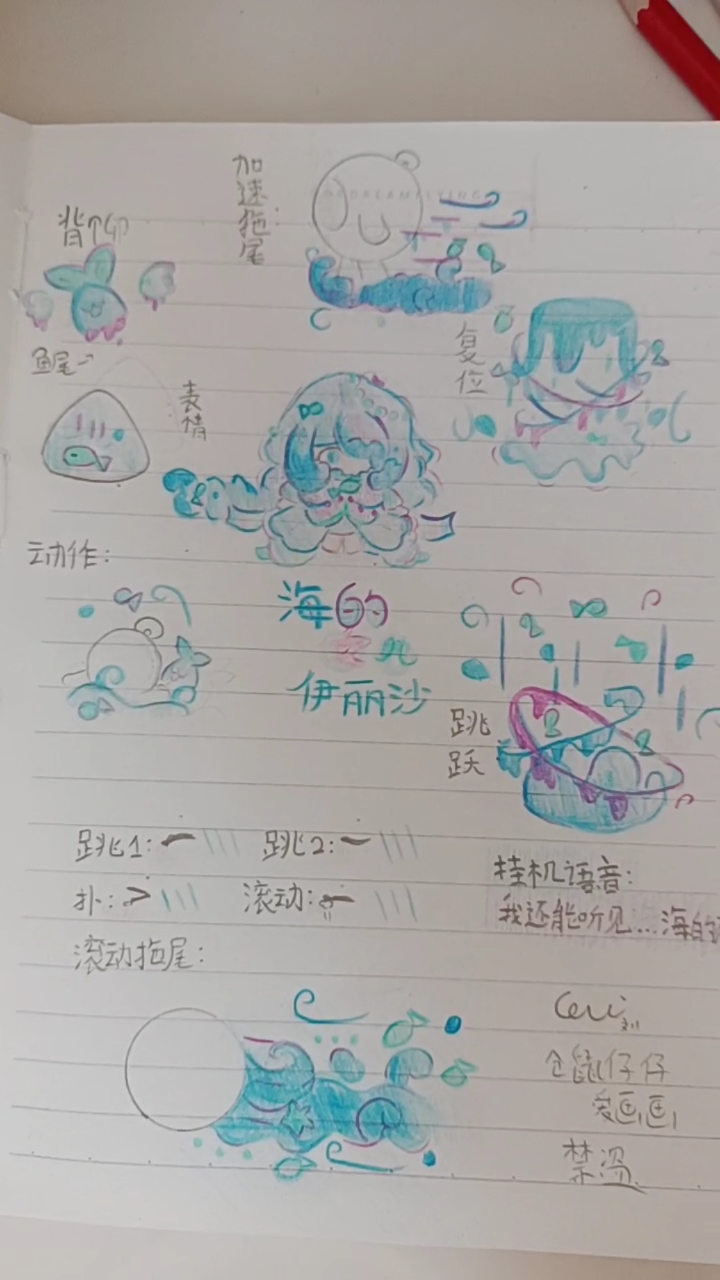 加速拖尾：
背饰
鱼尾→
表情
复位
动作：
海的
伊丽沙
跳跃
跳1：
跳2：
扑：
滚动：
挂机语音：
我还能听见...海的
滚动拖尾：
仓鼠仔仔
爱画画
禁盗